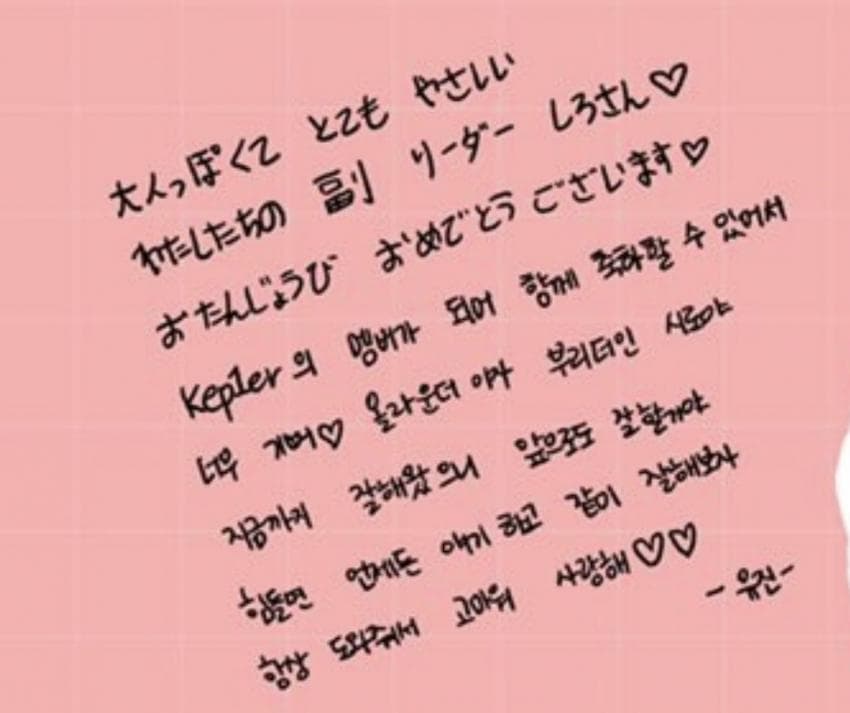 大人っぽくて とても やさしい
わたしたちの 副 リーダー しろさん♡
おたんじょうび おめでとう ございます♡
Kep1er의 멤버가 되어 함께 축하할 수 있어서
너무 기뻐♡ 올라운더 이자 부리더인 시로야
지금까지 잘해왔으니 앞으로도 잘할거야
힘들면 언제든 얘기하고 같이 잘해보자
항상 도와줘서 고마워 사랑해♡♡
- 유진 -